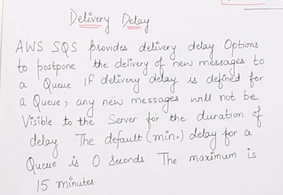 Delivery Delay
AWS SQS provides delivery delay Options
to postpone the delivery of new messages to
a Queue If delivery delay is defined for
a Queue, any new messages will not be
Visible to the Server for the duration of
delay The default (min.) delay for a
Queue is 0 Seconds The maximum is
15 minutes